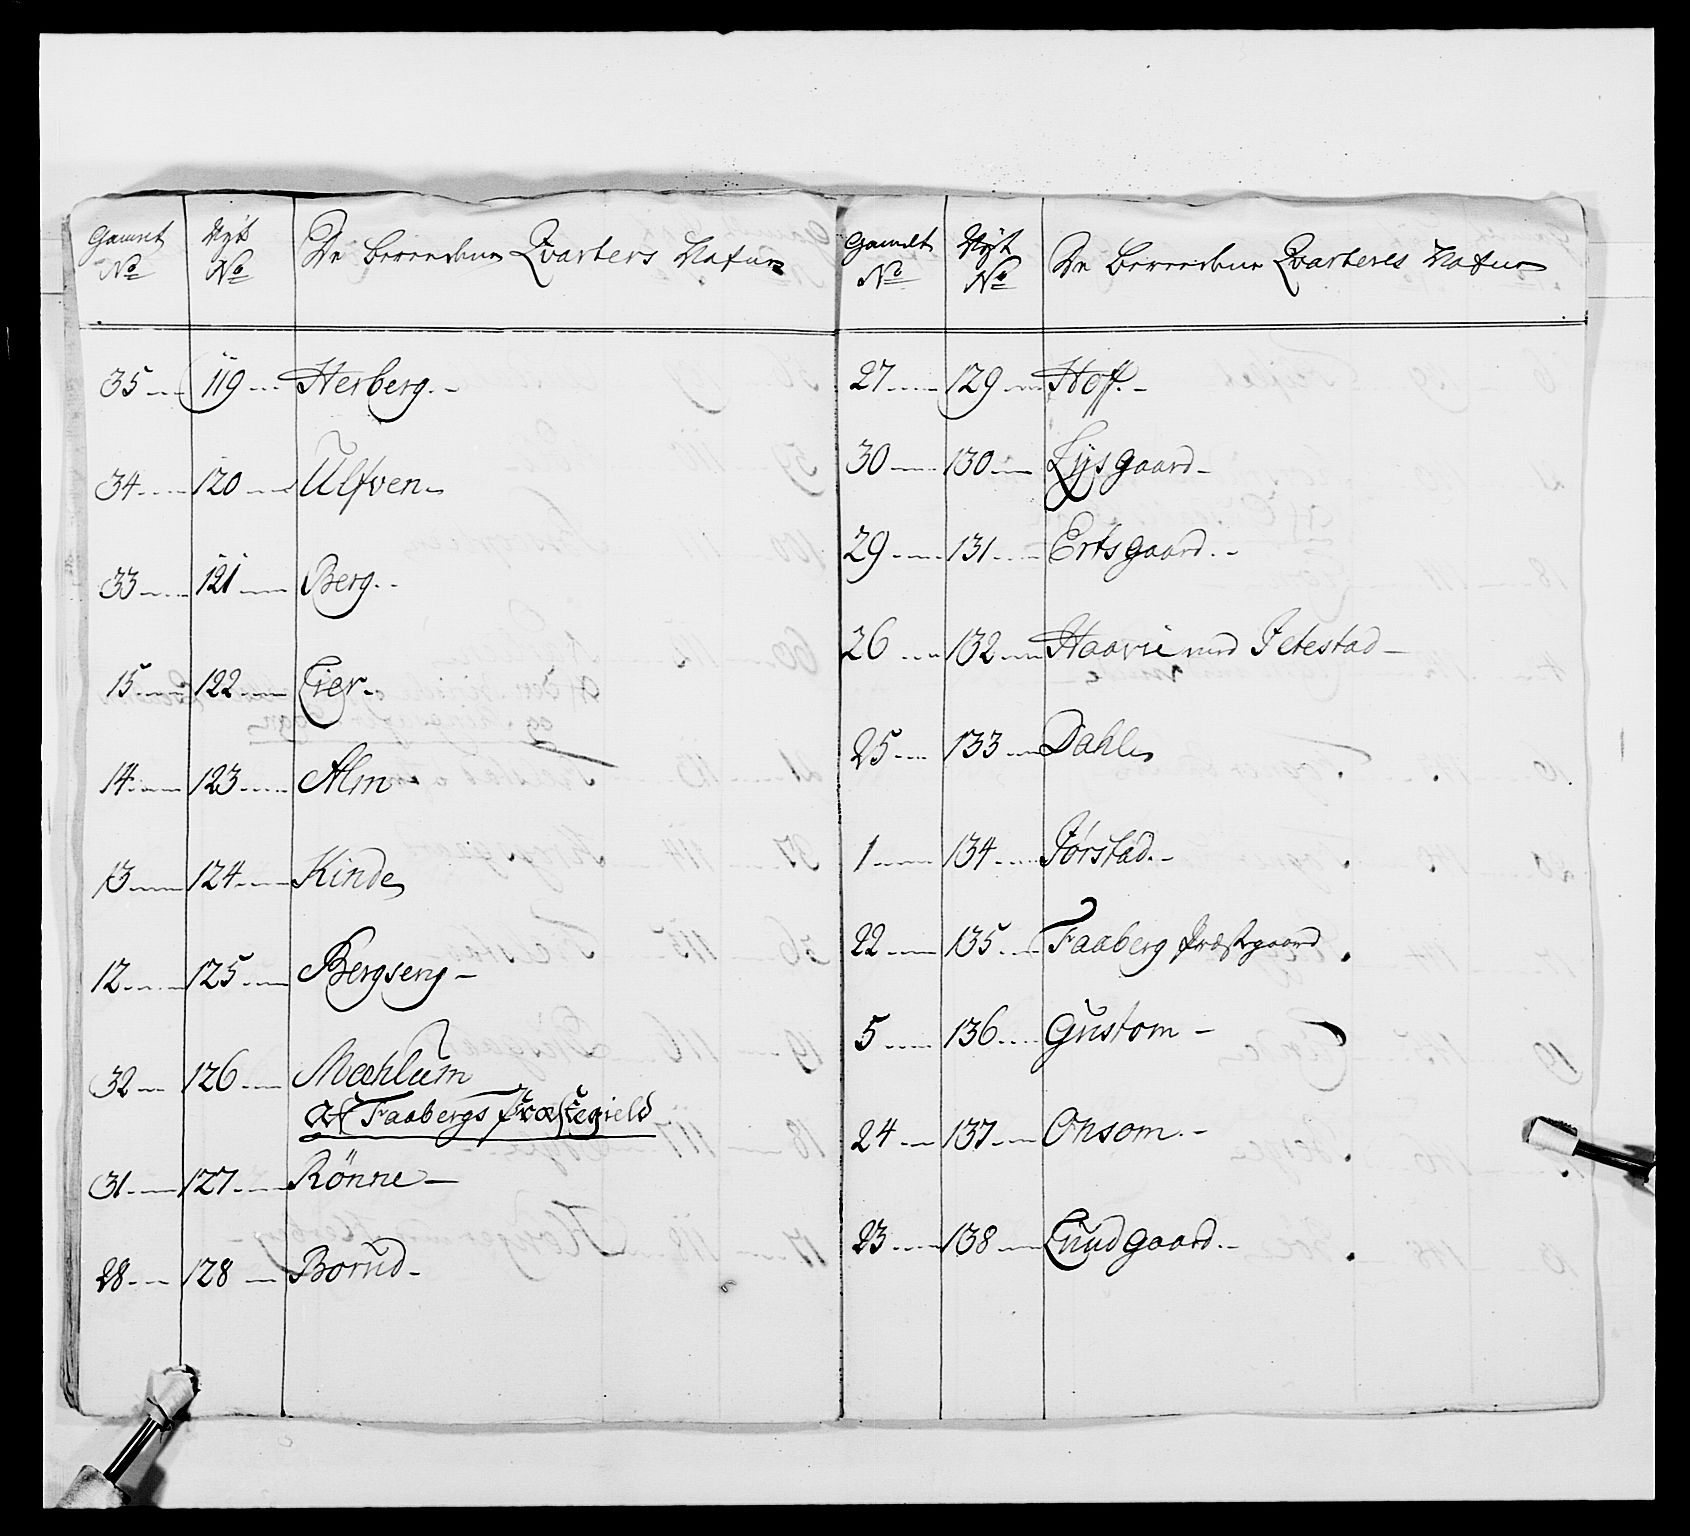 Gamelt Nyt De beridne Qvarters Nafne
No No
35 119 Herberg.
34 120 Ulfven
33 121 Berg.
15 122 Lier.
14 123 Alm
13 124 Kinde
12 125 Bergseng
32 126 Mæhlum
Af Faabergs Præstegield
31 127 Rönne
28 128 Borud
Gamelt Nyt De beridne Qvarteres Nafne
No No
27 129 Hoff.
30 130 Lysgaard
29 131 Ertsgaard.
26 132 Haavie med Jetestad
25 133 Dahle
1 134 Jørstad.
22 135 Faaberg Præstgaard
5 136 Gustom
24 137 Onsom.
23 138 Lundgaard.